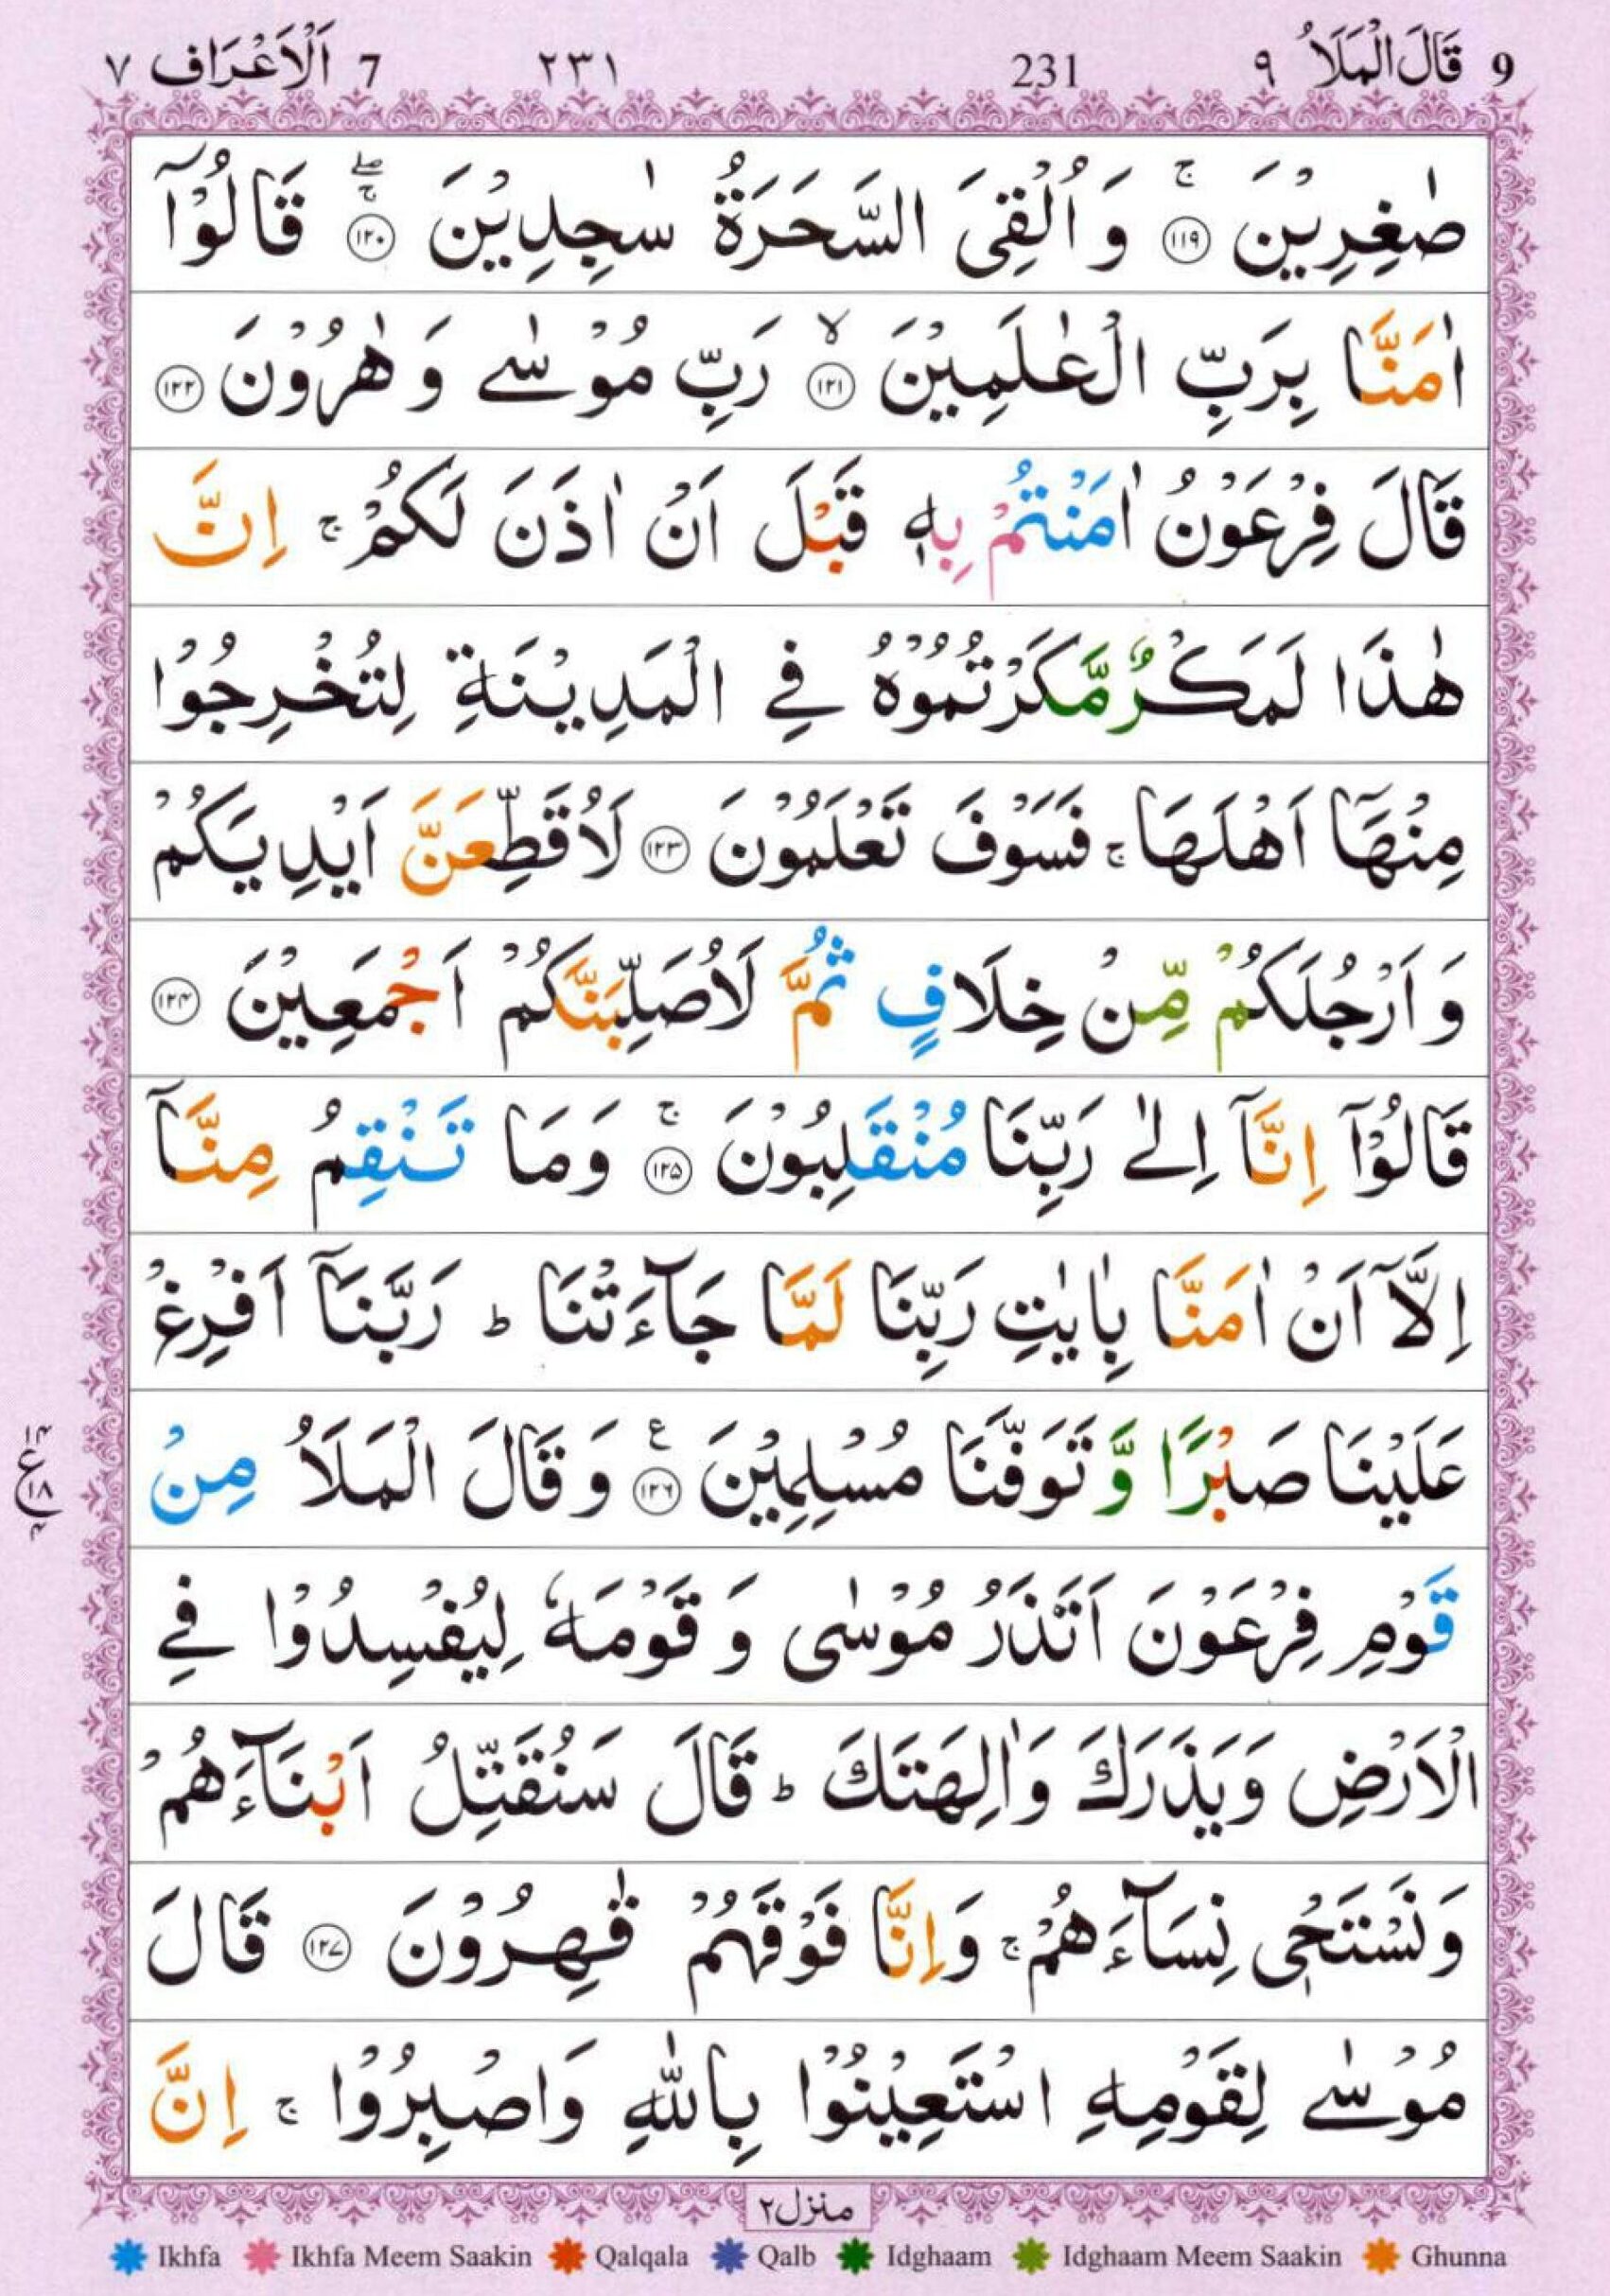 9 قَالَ الْمَلَاُ ٩ 231 ٢٣١ 7 اَلْاَعْرَاف ٧
صٰغِرِيْنَ ۚ ﴿١١٩﴾ وَ اُلْقِیَ السَّحَرَةُ سٰجِدِيْنَ ۚۖ ﴿١٢٠﴾ قَالُوْۤا
اٰمَنَّا بِرَبِّ الْعٰلَمِيْنَ ۙ ﴿١٢١﴾ رَبِّ مُوْسٰے وَ هٰرُوْنَ ﴿١٢٢﴾
قَالَ فِرْعَوْنُ اٰمَنْتُمْ بِهٖ قَبْلَ اَنْ اٰذَنَ لَكُمْ ۚ اِنَّ
هٰذَا لَمَكْرٌ مَّكَرْتُمُوْهُ فِے الْمَدِيْنَةِ لِتُخْرِجُوْا
مِنْهَاۤ اَهْلَهَا ۚ فَسَوْفَ تَعْلَمُوْنَ ﴿١٢٣﴾ لَاُقَطِّعَنَّ اَيْدِيَكُمْ
وَ اَرْجُلَكُمْ مِّنْ خِلَافٍ ثُمَّ لَاُصَلِّبَنَّكُمْ اَجْمَعِيْنَ ﴿١٢٤﴾
قَالُوْۤا اِنَّاۤ اِلٰے رَبِّنَا مُنْقَلِبُوْنَ ۚ ﴿١٢٥﴾ وَمَا تَنْقِمُ مِنَّاۤ
اِلَّاۤ اَنْ اٰمَنَّا بِاٰيٰتِ رَبِّنَا لَمَّا جَآءَتْنَا ؕ رَبَّنَاۤ اَفْرِغْ
عَلَيْنَا صَبْرًا وَّ تَوَفَّنَا مُسْلِمِيْنَ ﴿١٢٦﴾ ع وَ قَالَ الْمَلَاُ مِنْ
١٤ ع ١٨ ٤
قَوْمِ فِرْعَوْنَ اَتَذَرُ مُوْسٰى وَ قَوْمَهٗ لِيُفْسِدُوْا فِے
الْاَرْضِ وَيَذَرَكَ وَاٰلِهَتَكَ ؕ قَالَ سَنُقَتِّلُ اَبْنَآءَهُمْ
وَنَسْتَحْیٖ نِسَآءَهُمْ ۚ وَاِنَّا فَوْقَهُمْ قٰهِرُوْنَ ﴿١٢٧﴾ قَالَ
مُوْسٰے لِقَوْمِهِ اسْتَعِيْنُوْا بِاللّٰهِ وَاصْبِرُوْا ۚ اِنَّ
منزل ٢
Ikhfa Ikhfa Meem Saakin Qalqala Qalb Idghaam Idghaam Meem Saakin Ghunna